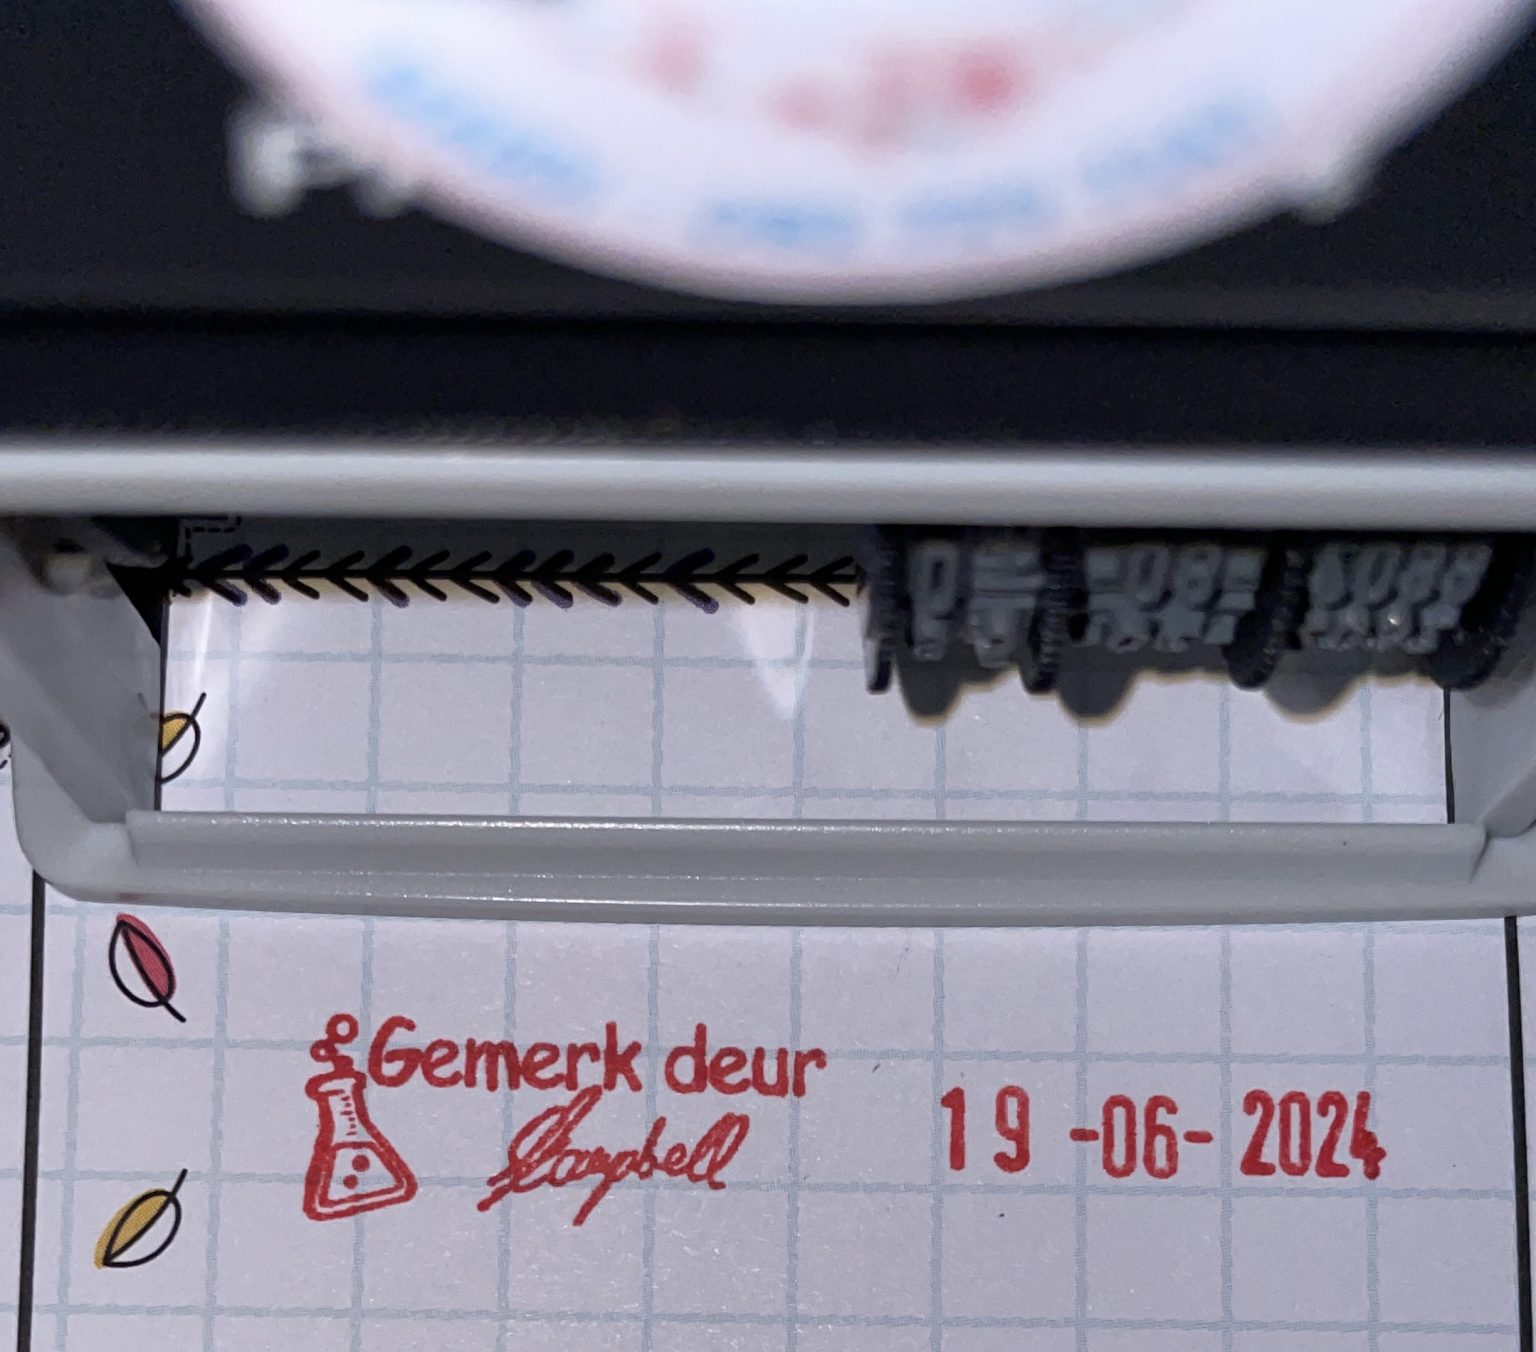 Gemerk deur
Campbell
19 -06- 2024